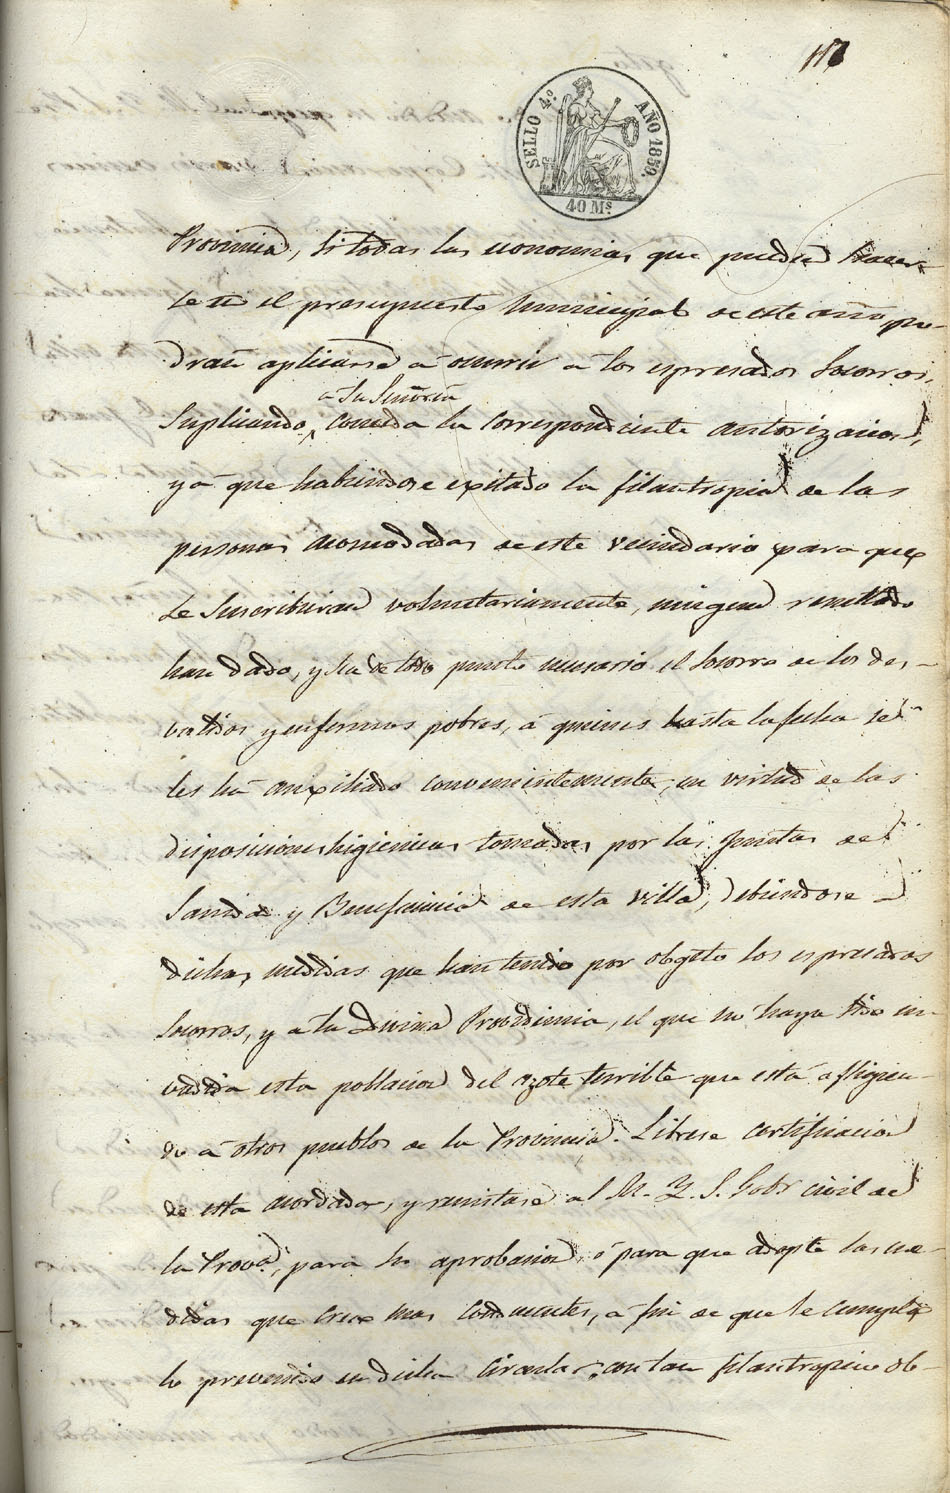 117
SELLO 4.º AÑO 1859.
40 Ms
Provincia, si todas las economias que puedan hacer-
se en el presupuesto municipal de este año po-
dran aplicarse á ocurrir á los espresados Socorros,
á Su Señoria
Suplicando conceda la correspondiente autorizacion,
yá que habiendose exitado la filantropia de las
personas acomodadas de este vecindario para que
se Suscribieran voluntariamente, ningun resultado
han dado, y há de todo punto necesario el Socorro de los des-
validos y enfermos pobres, á quienes hasta la fecha se
les há auxiliado convenientemente, en virtud de las
disposiciones higienicas tomadas por las Juntas de
Sanidad y Beneficiencia de esta villa, debiendose
dichas medidas que han tenido por obgeto los espresados
Socorros, y a la Divina Providencia, el que no haya sido in-
vadida esta poblacion del azote terrible que está afligien-
do á otros pueblos de la Provincia. Librese certificacion
de esta acordada, y remitase al M. Y. S. Gobr civil de
la Prova, para su aprobacion, ó para que adopte las me-
didas que crea mas conducentes, á fin de que se cumpla
lo prevenido en dicha Circular, con tan filantropico ob-